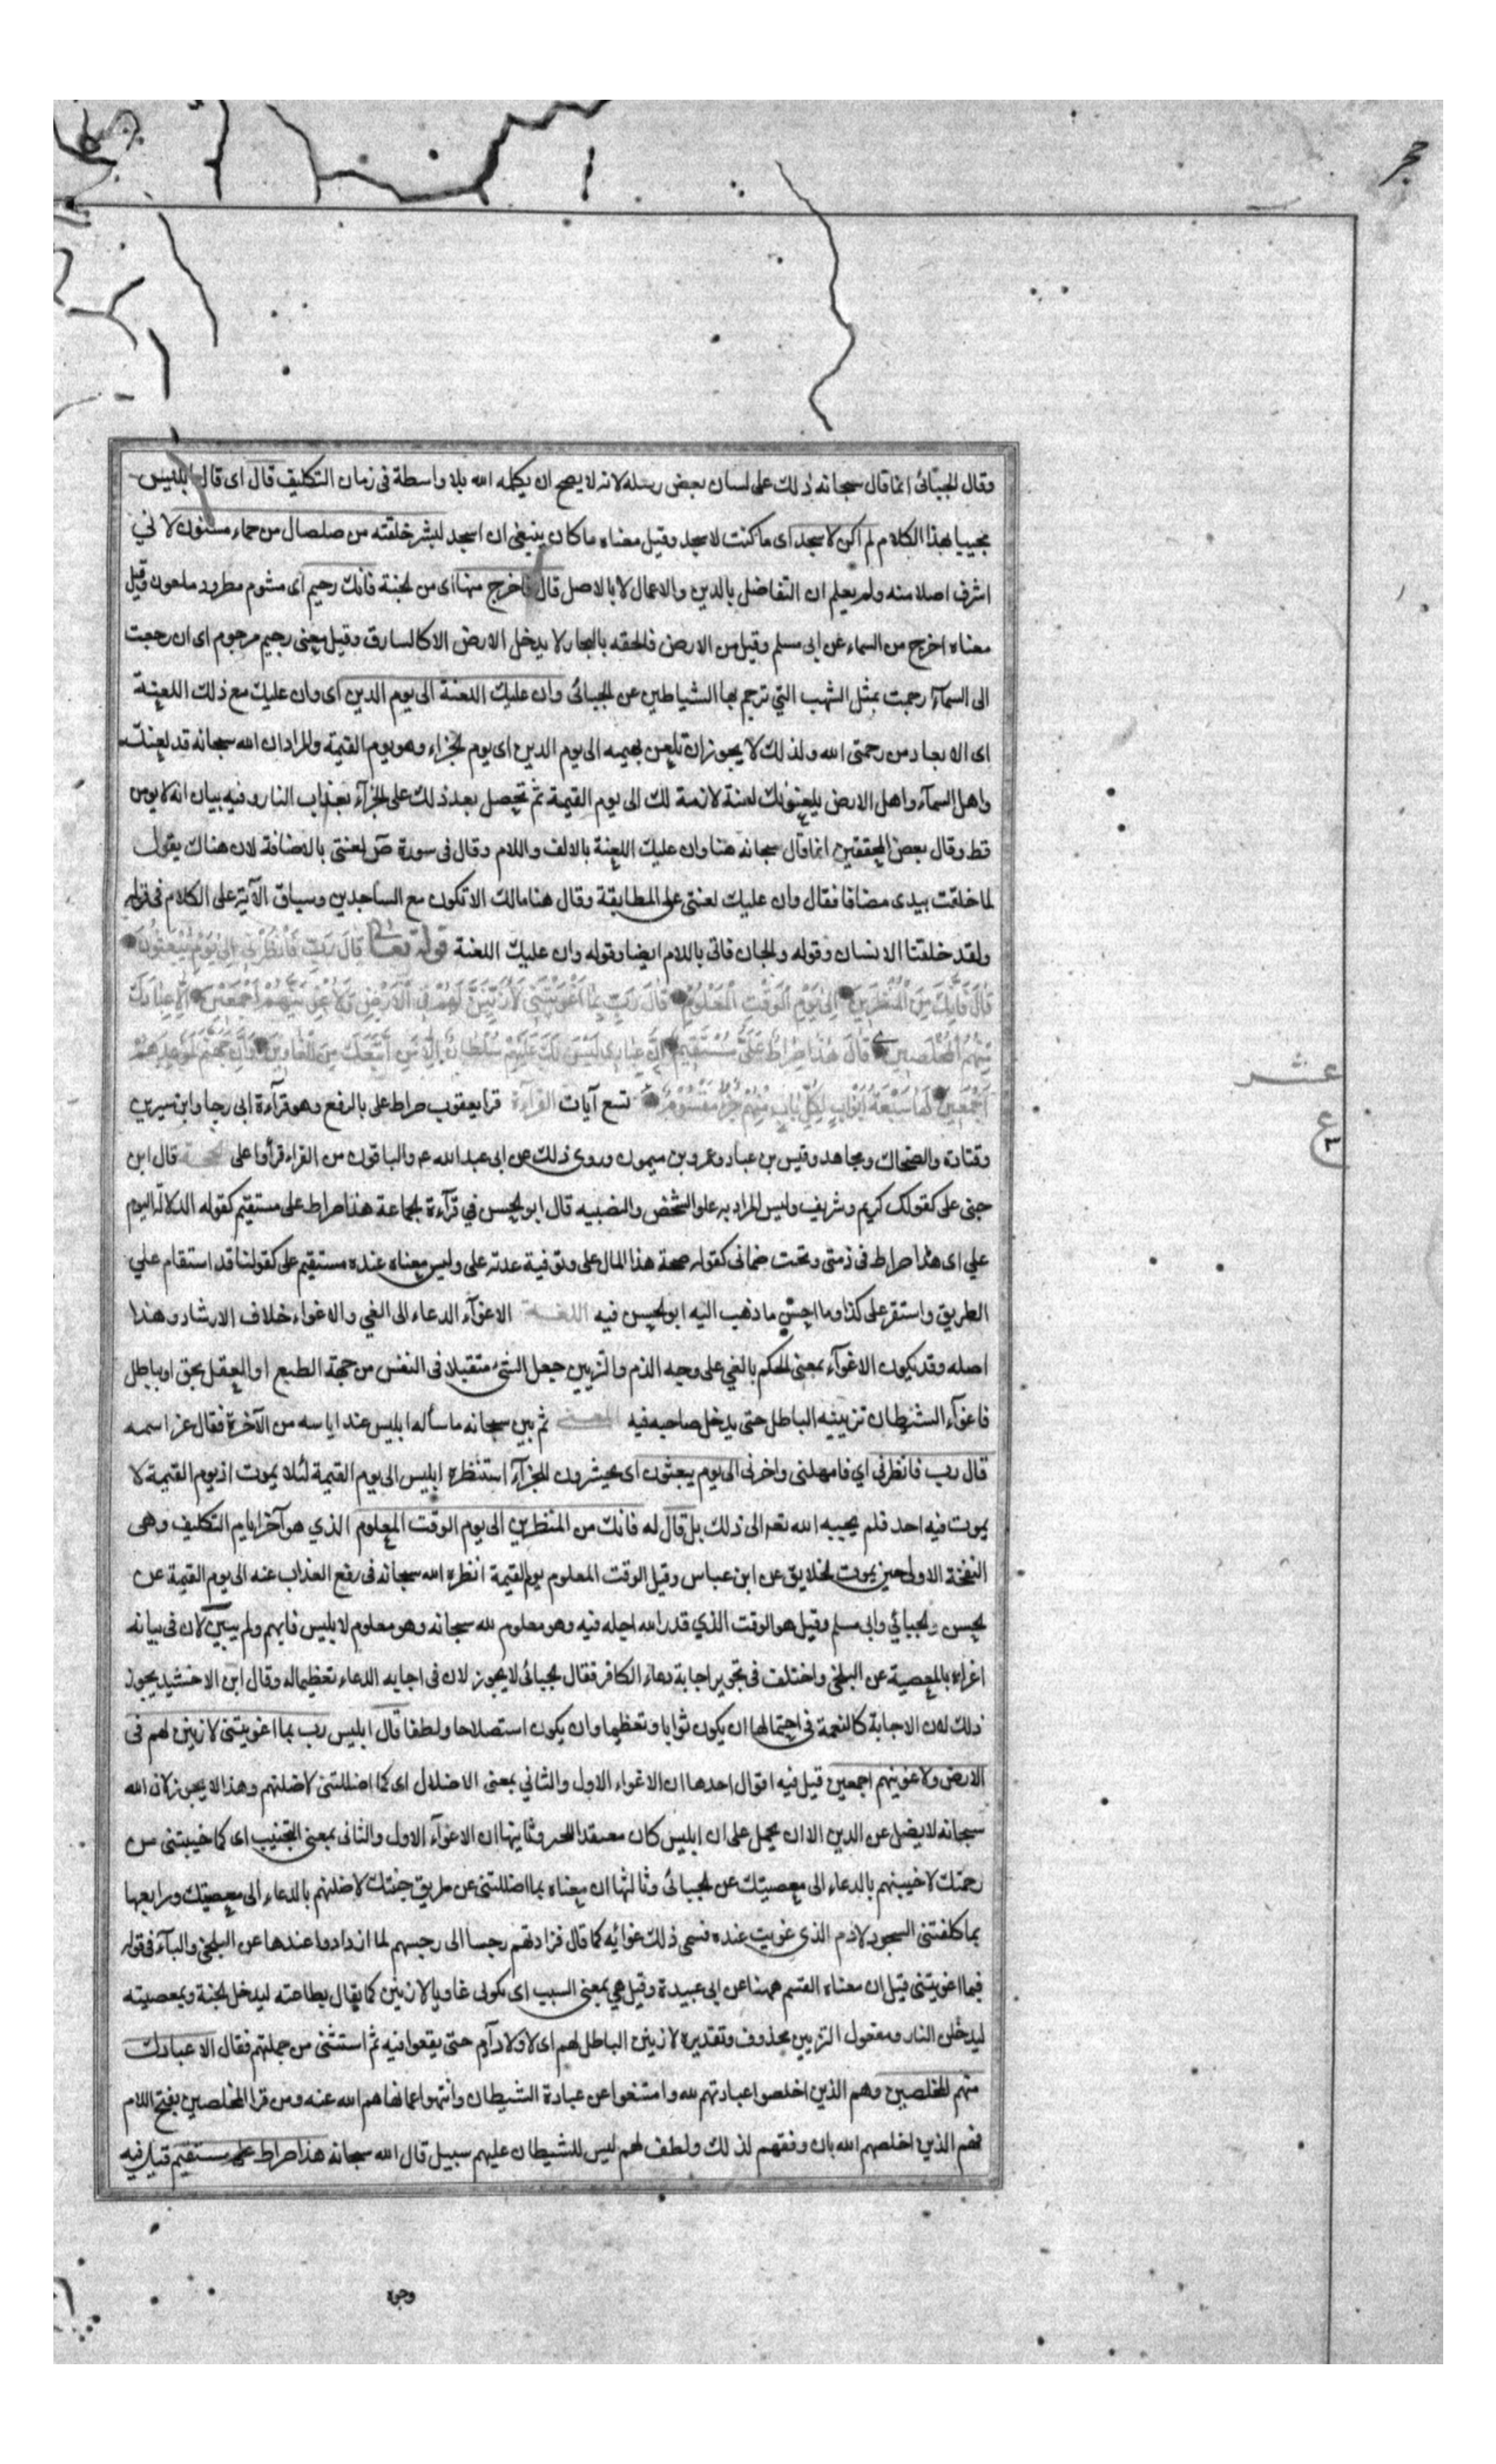 وقال الجبائى انما قال سبحانه ذلك على لسان بعض رسله لانه لا يصح ان يكلمه الله بلا واسطة فى زمان التكليف قال اى قال ابليس
مجيبا بهذا الكلام لم اكن لاسجد اى ما كنت لاسجد وقيل معناه ما كان ينبغى ان اسجد لبشر خلقته من صلصال من حماء مسنون لانى
اشرف اصلا منه ولم يعلم ان التفاضل بالدين والاعمال لا بالاصل قال فاخرج منها اى من الجنة فانك رجيم اى مشوم مطرود ملعون وقيل
معناه اخرج من السماء عن ابى مسلم وقيل من الارض فالحقه بالبحار لا يدخل الارض الا كالسارق وقيل معنى رجيم مرجوم اى ان رجعت
الى السمآء رجمت بمثل الشهب التي ترجم بها الشياطين عن الجبائى وان عليك اللعنة الى يوم الدين اى وان عليك مع ذلك اللعنة
اى الابعاد من رحمتى الله ولذلك لا يجوز ان تلعن بهيمه الى يوم الدين اى يوم الجزاء وهو يوم القيمة والمراد ان الله سبحانه قد لعنك
واهل السمآء واهل الارض يلعنونك لعنة لازمة لك الى يوم القيمة ثم تحصل بعد ذلك على الجزآء بعذاب النار وفيه بيان انه لا يومن
قط وقال بعض المحققين انما قال سبحانه هنا وان عليك اللعنة بالالف واللام وقال فى سورة ص لعنتى بالاضافة لان هناك يقول
لما خلقت بيدى مضافا فقال وان عليك لعنتى على المطابقة وقال هنا مالك الا تكون مع الساجدين وسياق الآية على الكلام فى قوله
ولقد خلقنا الانسان وقوله والجان فاتى باللام ايضا وقوله وان عليك اللعنة قوله تعالى قَالَ رَبِّ فَانْظِرْنِى اِلىٰ يَوْمِ يُبْعَثُونَ
قَالَ فَاِنَّكَ مِنَ الْمُنْظَرِينَ اِلىٰ يَوْمِ الْوَقْتِ الْمَعْلُومِ قَالَ رَبِّ بِمَا اَغْوَيْتَنِى لَاُزَيِّنَنَّ لَهُمْ فِى الْاَرْضِ وَلَاُغْوِيَنَّهُمْ اَجْمَعِينَ اِلَّا عِبَادَكَ
مِنْهُمُ الْمُخْلَصِينَ قَالَ هٰذَا صِرَاطٌ عَلَىَّ مُسْتَقِيمٌ اِنَّ عِبَادِى لَيْسَ لَكَ عَلَيْهِمْ سُلْطَانٌ اِلَّا مَنِ اتَّبَعَكَ مِنَ الْغَاوِينَ وَاِنَّ جَهَنَّمَ لَمَوْعِدُهُمْ
اَجْمَعِينَ لَهَا سَبْعَةُ اَبْوَابٍ لِكُلِّ بَابٍ مِنْهُمْ جُزْءٌ مَقْسُومٌ تسع آيات القرآءة قرا يعقوب صراط على بالرفع وهو قرآءة ابى رجا وابن سيرين
وقتادة والضحاك ومجاهد وقيس بن عباد وعمرو بن ميمون وروى ذلك عن ابى عبد الله ع والباقون من القراء قرأوا على الحجة قال ابن
جنى على كقولك كريم وشريف وليس المراد به علو الشخص والنصبيه قال ابو الحسن في قرآءة الجماعة هذا صراط على مستقيم كقوله الدلالة اليوم
علي اى هذا صراط فى ذمتى وتحت ضمانى كقوله صحة هذا المال على وتوفية عدته على وليس معناه عنده مستقيم على كقولنا قد استقام علي
الطريق واستقر على كذا وما احسن ما ذهب اليه ابو الحسن فيه اللغة الاغوآء الدعاء الى الغي والاغواء خلاف الارشاد وهذا
اصله وقد يكون الاغوآء بمعنى الحكم بالغي على وجه الذم والتزيين جعل الشئ متقبلا فى النفس من جهة الطبع او العقل بحق او بباطل
فاغوآء الشيطان تزيينه الباطل حتى يدخل صاحبه فيه المعنى ثم بين سبحانه ما سأله ابليس عند اياسه من الآخرة فقال عز اسمه
قال رب فانظرنى اي فامهلنى واخرنى الى يوم يبعثون اى يحشرون للجزآء استنظره ابليس الى يوم القيمة لئلا يموت اذ يوم القيمة لا
يموت فيه احد فلم يجيبه الله تعه الى ذلك بل قال له فانك من المنظرين الى يوم الوقت المعلوم الذي هو آخر ايام التكليف وهى
النفخة الاولى حين يموت الخلايق عن ابن عباس وقيل الوقت المعلوم يوم القيمة انظره الله سبحانه فى رفع العذاب عنه الى يوم القيمة عن
الحسن والجبائي وابى مسلم وقيل هو الوقت الذي قدر الله اجله فيه وهو معلوم لله سبحانه وهو معلوم لابليس فابهم ولم يبين لان فى بيانه
اغراه بالمعصية عن البلخى واختلف فى تجويز اجابة دعاء الكافر فقال الجبائى لا يجوز لان فى اجابه الدعاء تعظيما له وقال ابن الاخشيد يجوز
ذلك لان الاجابة كالنعمة فى احتمالها ان يكون ثوابا وتعظيما وان يكون استصلاحا ولطفا قال ابليس رب بما اغويتنى لازينن لهم فى
الارض ولاغوينهم اجمعين قيل فيه اقوال احدها ان الاغواء الاول والثاني بمعنى الاضلال اى كما اضللتنى لاضلنهم وهذا لا يجوز لان الله
سبحانه لا يضل عن الدين الا ان يحمل على ان ابليس كان معتقدا للجبر وثانيها ان الاغوآء الاول والثانى بمعنى التخييب اى كما خيبتنى من
رحمتك لاخيبنهم بالدعاء الى معصيتك عن الجبائى وثالثها ان معناه بما اضللتنى عن طريق جنتك لاضلنهم بالدعاء الى معصيتك ورابعها
بما كلفتنى السجود لادم الذى غويت عنده فسمى ذلك غوائه كما قال فزادتهم رجسا الى رجسهم لما ازدادوا عندها عن البلخى والبآء فى قوله
فبما اغويتنى قيل ان معناه القسم ههنا عن ابى عبيدة وقيل هي بمعنى السبب اى بكونى غاويا لازينن كما يقال بطاعته ليدخل الجنة وبمعصيته
ليدخلن النار ومفعول التزيين محذوف وتقديره لازينن الباطل لهم اى لاولاد آدم حتى يقعوا فيه ثم استثنى من جملتهم فقال الا عبادك
منهم المخلصين وهم الذين اخلصوا عبادتهم لله وامتنعوا عن عبادة الشيطان وانتهوا عما نهاهم الله عنه ومن قرا المخلصين بفتح اللام
فهم الذين اخلصهم الله بان وفقهم لذلك ولطف لهم ليس للشيطان عليهم سبيل قال الله سبحانه هذا صراط على مستقيم قيل فيه
عشر
ع
وجوه